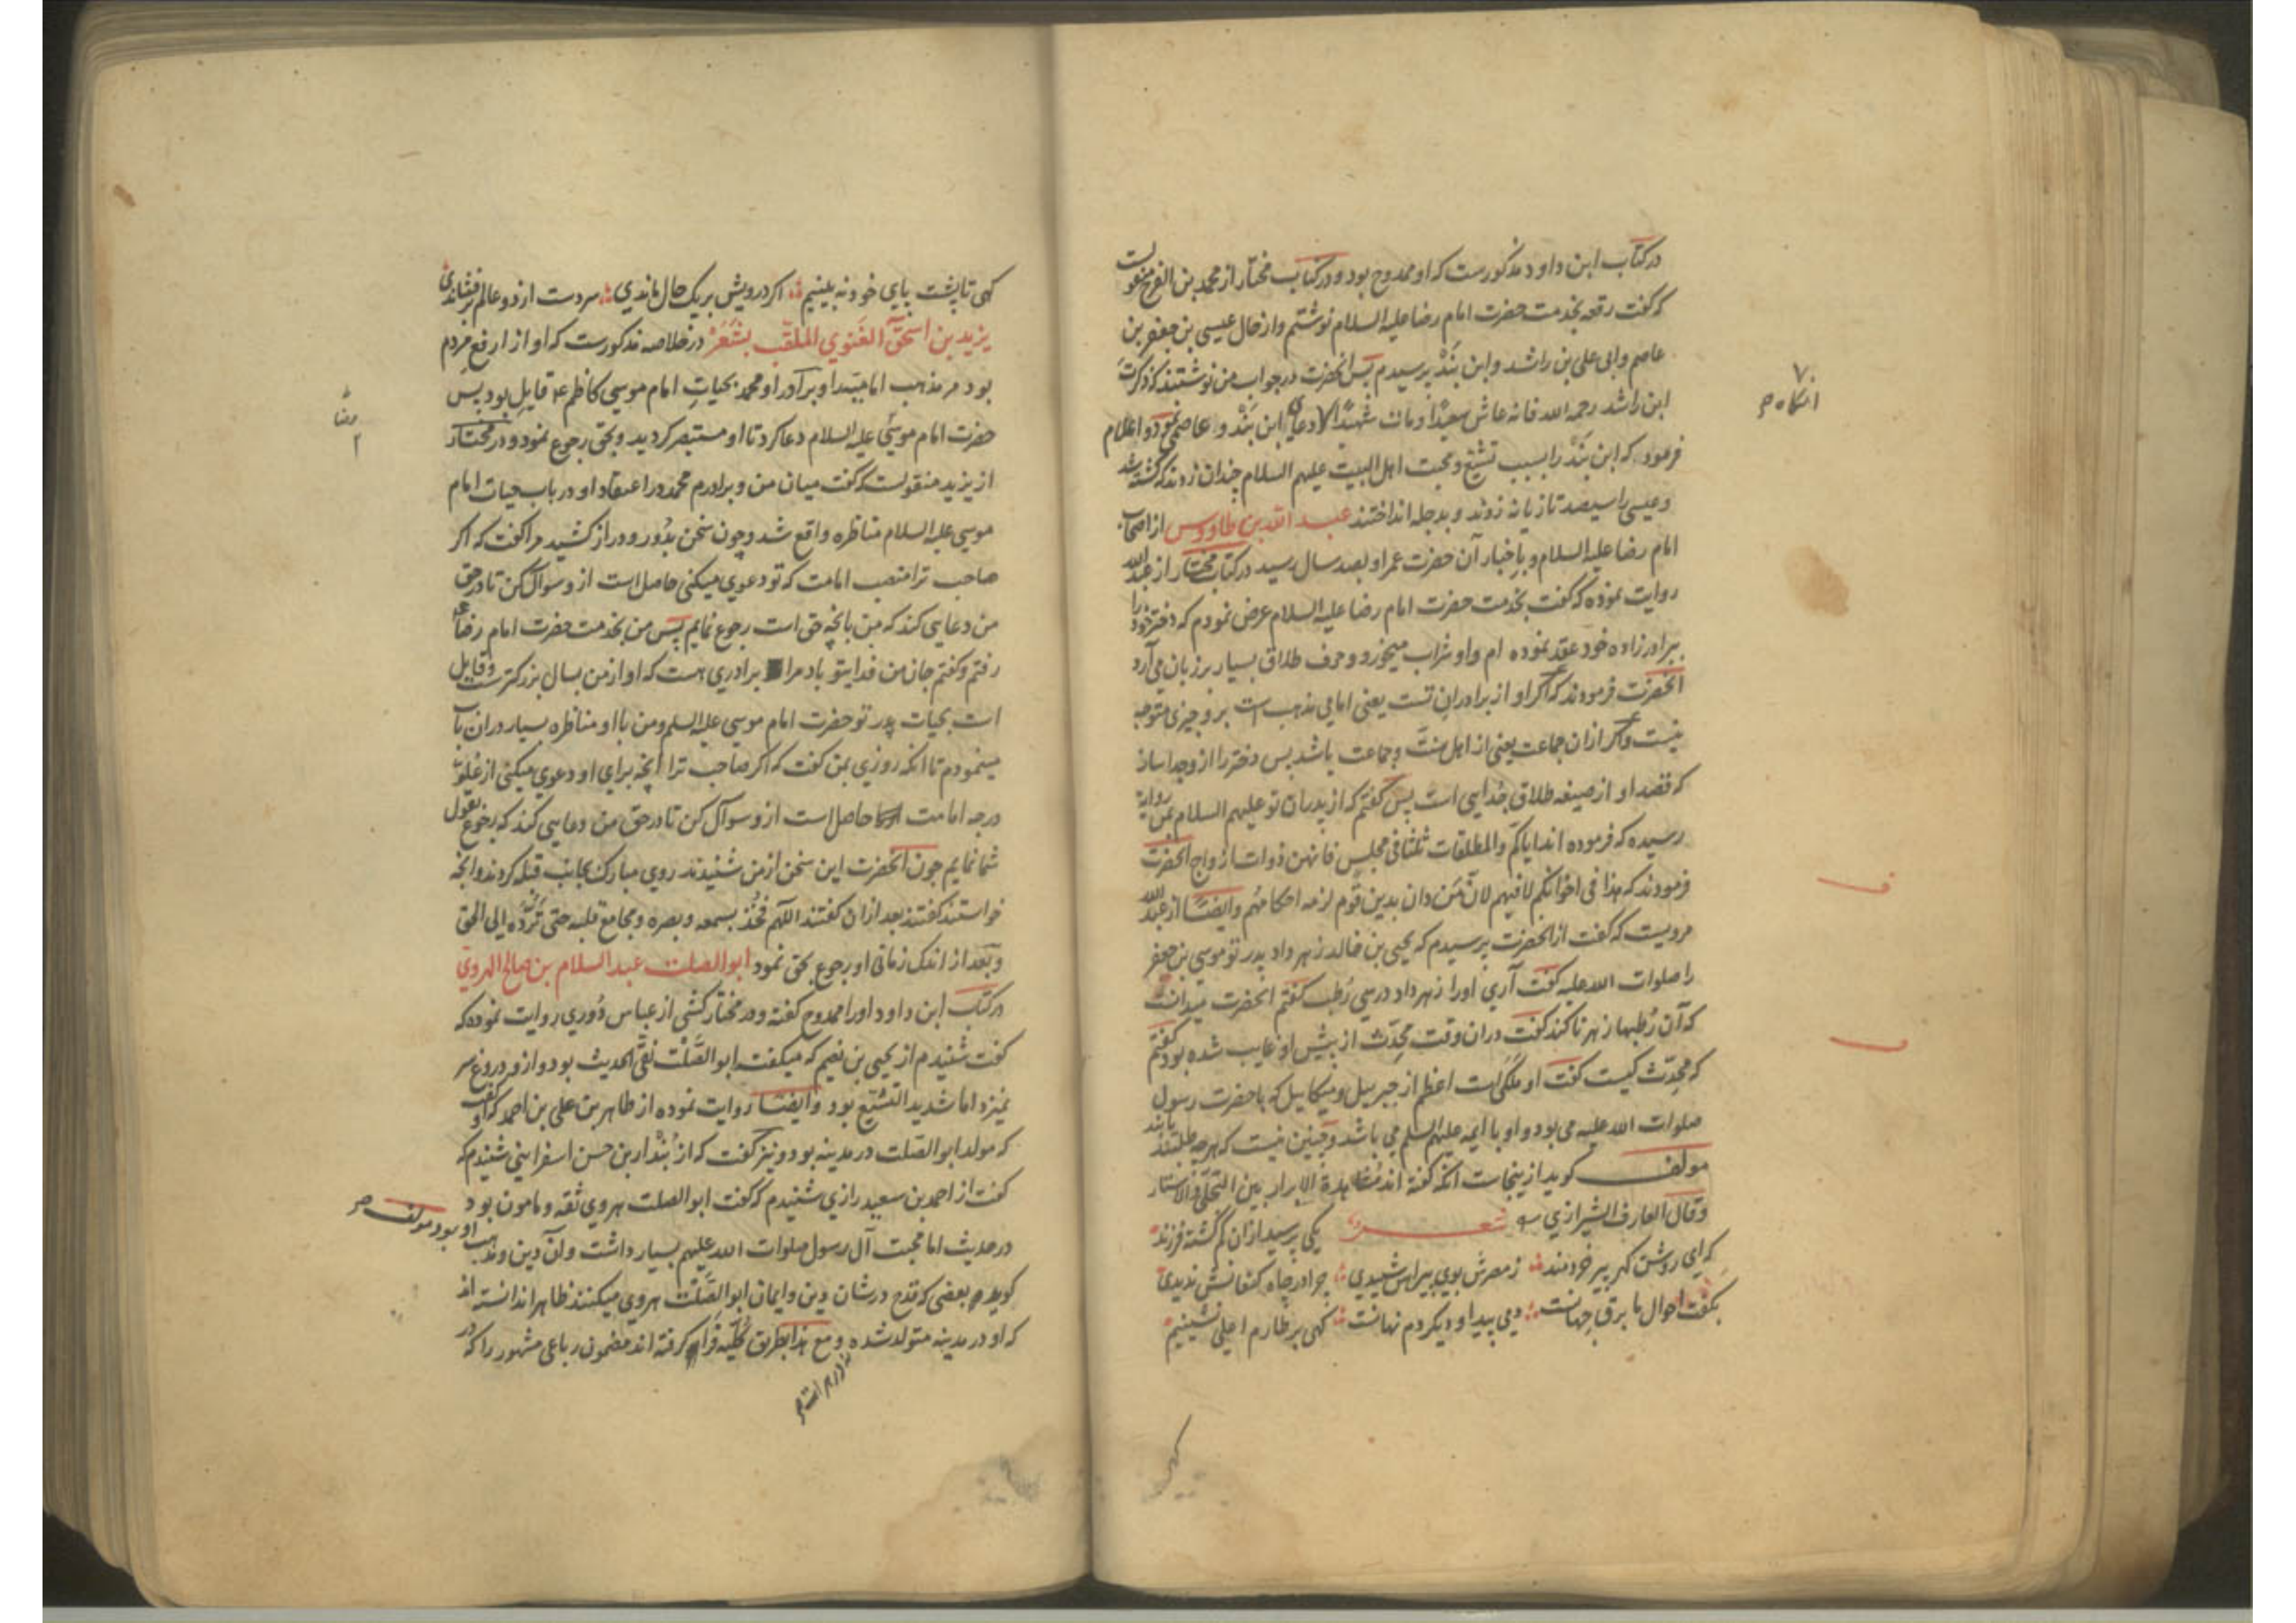 در کتاب ابن داود مذکورست که او ممدوح بود و در کتاب مختار از محمد بن الفرج منقولست
که گفت رقعه بخدمت حضرت امام رضا علیه السلام نوشتم و از حال عیسی بن جعفر بن
عاصم و ابی علی بن راشد و ابن بَنْد پرسیدم پس آنحضرت در جواب من نوشتند که ذکرتَ
ابن راشد رحمه الله فانه عاش سعیدًا و مات شهیدًا و دعا ابن بَنْد و عاصمی نمود و اعلام
فرمود که ابن بَنْد را بسبب تشیّع و محبت اهل البیت علیهم السلام چندان زدند که کشته شد
و عیسی را سیصد تازیانه زدند و بدجله انداختند عبد الله بن طاووس از اصحاب
امام رضا علیه السلام و باخبار آن حضرت عمر او بصد سال رسید در کتاب مختار از عبد الله
روایت نموده که گفت بخدمت حضرت امام رضا علیه السلام عرض نمودم که دختر خود را
ببرادرزاده خود عقد نموده ام و او شراب میخورد و حرف طلاق بسیار بر زبان می آرد
آنحضرت فرمودند که اگر او از برادران تست یعنی امامی مذهب است بر او چیزی متوجه
نیست و اگر از آن جماعت یعنی از اهل سنّت و جماعت باشد پس دختر را ازو جدا ساز
که قصد او از صیغه طلاق جدایی است پس گفتم که از پدران تو علیهم السلام بمن روایة
رسیده که فرموده اند ایاکم والمطلقات ثلثا فی مجلس فانهن ذوات ازواج آنحضرت
فرمودند که هذا فی اخوانکم لا فیهم لانّ مَن دان بدین قوم لزمه احکامهم و ایضا از عبد الله
مرویست که گفت از آنحضرت پرسیدم که یحیی بن خالد زهر داد پدر تو موسی بن جعفر
را صلوات الله علیه گفت آری او را زهر داد در سی رُطب گفتم آنحضرت نمیدانست
که آن رُطبها زهرناکند گفت در آن وقت محدّث از پیش او غایب شده بود گفتم
که محدّث کیست گفت او مَلَکی است اعظم از جبرییل و میکاییل که با حضرت رسول
صلوات الله علیه می بود و او با ایمه علیهم السلم می باشد و چنین نیست که هرچه طلبند یابند
مولف گوید ازینجاست آنکه گفته اند مُشاهدة الابرار بین التجلّی والاستتار
وقال العارف الشیرازی شعر یکی پرسید از آن گم گشته فرزند
که ای روشن گهر پیر خردمند ز مصرش بوی پیراهن شنیدی چرا در چاه کنعانش ندیدی
بگفت احوال ما برق جهانست دمی پیدا و دیگر دم نهانست گهی بر طارم اعلی نشینیم
آنگاه
گهی
گهی تا پشت پای خود نبینیم اگر درویش بر یک حال ماندی سر دست از دو عالم برفشاندی
یزید بن اسحقَ الغَنوی الملقّب بشَعَرْ در خلاصه مذکورست که او از ارفع مردم
بود مر مذهب امامیّه را و برادر او محمد بحیاتِ امام موسی کاظم ع قایل بود پس
حضرت امام موسی علیه السلام دعا کرد تا او مستبصر گردید و بحق رجوع نمود و در مختار
از یزید منقولست که گفت میان من و برادرم محمد در اعتقاد او در باب حیات امام
موسی علیه السلام مناظره واقع شد و چون سخن بدُور و دراز کشید مرا گفت که اگر
صاحب ترا منصب امامت که تو دعوی میکنی حاصل است ازو سوال کن تا در حق
من دعایی کند که من بانچه حق است رجوع نمایم پس من بخدمت حضرت امام رضا ع
رفتم و گفتم جان من فدای تو باد مرا برادری هست که او از من بسال بزرگترست و قایل
است بحیات پدر تو حضرت امام موسی علیه السلم و من با او مناظره بسیار در آن باب
مینمودم تا آنکه روزی بمن گفت که اگر صاحب ترا آنچه برای او دعوی میکنی از علوّ
درجه امامت حاصل است ازو سوآل کن تا در حق من دعایی کند که رجوع بقول
شما نمایم چون آنحضرت این سخن از من شنیدند روی مبارک بجانب قبله کردند و آنچه
خواستند گفتند بعد از آن گفتند اللّهم خُذ بسمعه و بصره و مجامع قلبه حتی تَرُدّه الی الحق
و بعد از اندک زمانی او رجوع بحق نمود ابو الصلت عبد السلام بن صالح الهروی
در کتاب ابن داود او را ممدوح گفته و در مختار کشی از عباس دُوری روایت نموده که
گفت شنیدم از یحیی بن نعیم که میگفت ابو الصَّلْت نقیّ الحدیث بود و ازو دروغ سر
نمیزد اما شدید التشیّع بود و ایضا روایت نموده از طاهر بن علی بن احمد که او گفت
که مولد ابو الصّلت در مدینه بود و نیز گفت که از بُندار بن حسن اسفراینی شنیدم که
گفت از احمد بن سعید رازی شنیدم که گفت ابو الصلت هروی ثقه و مامون بود
در حدیث اما محبت آل رسول صلوات الله علیهم بسیار داشت و آن دین و مذهب او بود مولف
گوید بعضی که قدح در شان دین و ایمان ابو الصَّلْت هروی میکنند ظاهرا ندانسته اند
که او در مدینه متولد شده و مع هذا بطریق کلّیّه فرا گرفته اند مضمون رباعی مشهور را که در
رضا